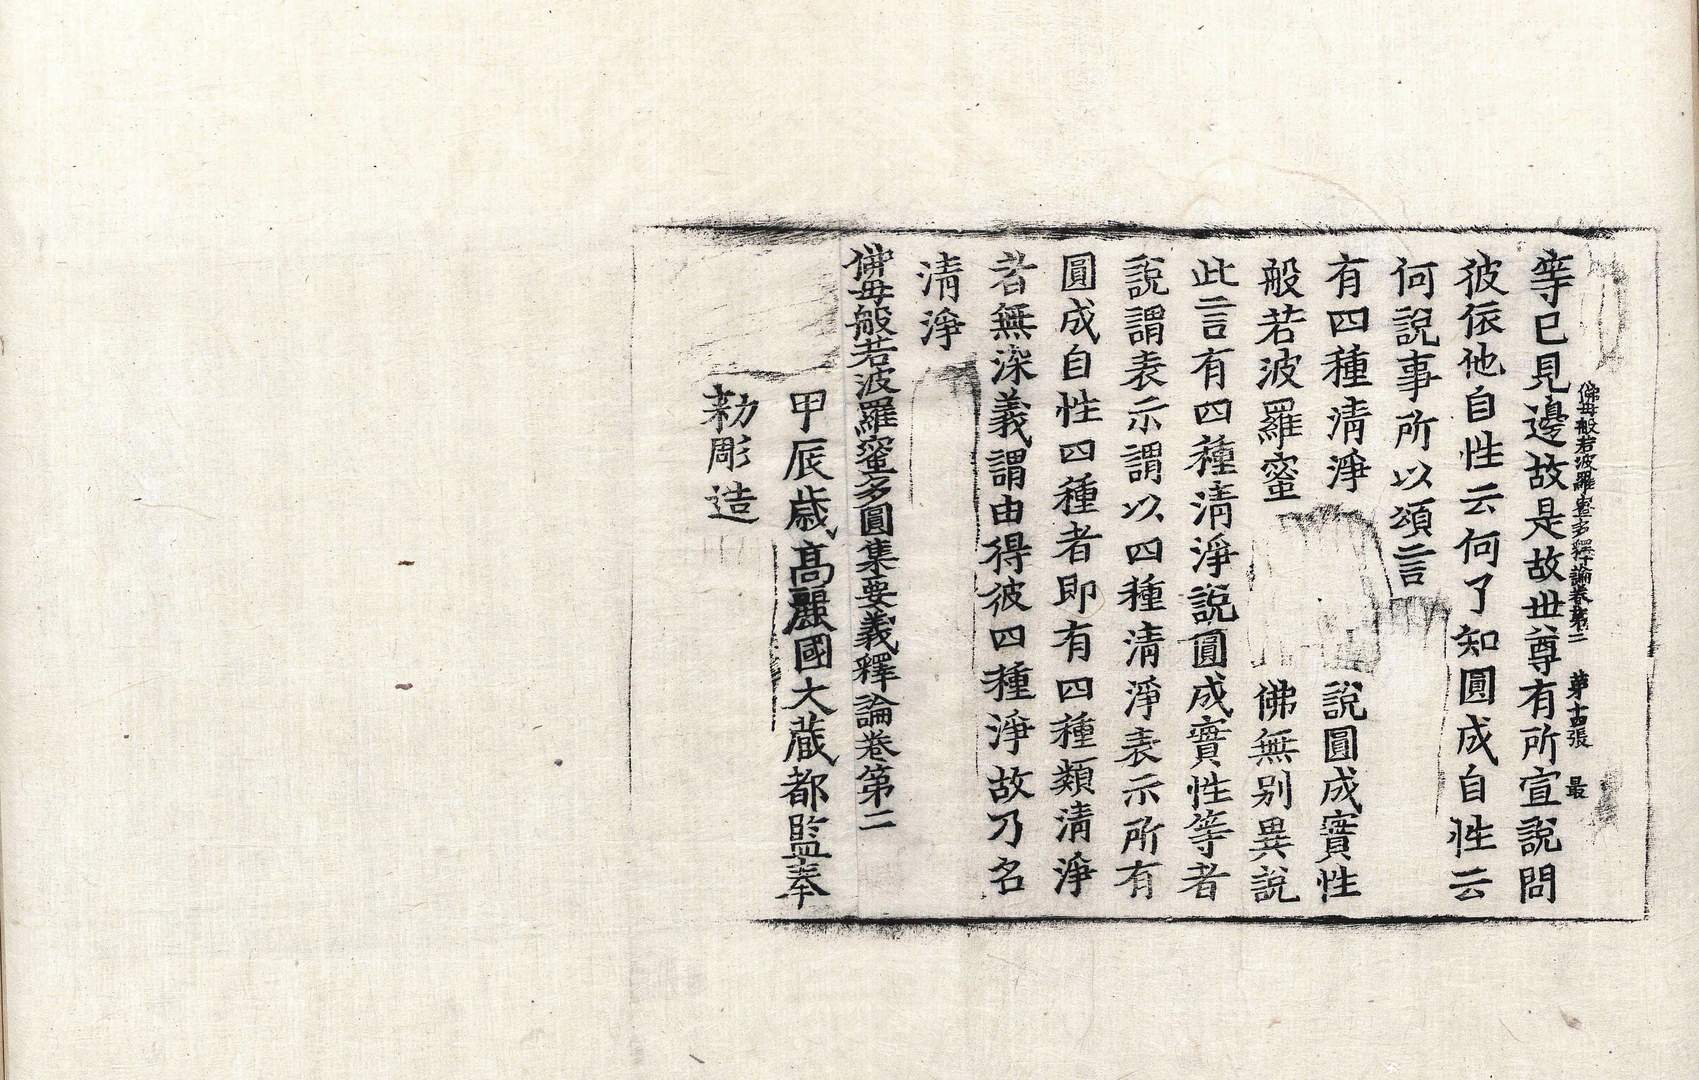 佛母般若波羅蜜多釋論卷第二 第十四張 最
等已見邊故是故世尊有所宣說問
彼依他自性云何了知圓成自性云
何說事所以頌言
有四種清淨 說圓成實性
般若波羅蜜 佛無別異說
此言有四種清淨說圓成實性等者
說謂表示謂以四種清淨表示所有
圓成自性四種者即有四種類清淨
者無深義謂由得彼四種淨故乃名
清淨
佛母般若波羅蜜多圓集要義釋論卷第二
甲辰歲高麗國大藏都監奉
勑彫造